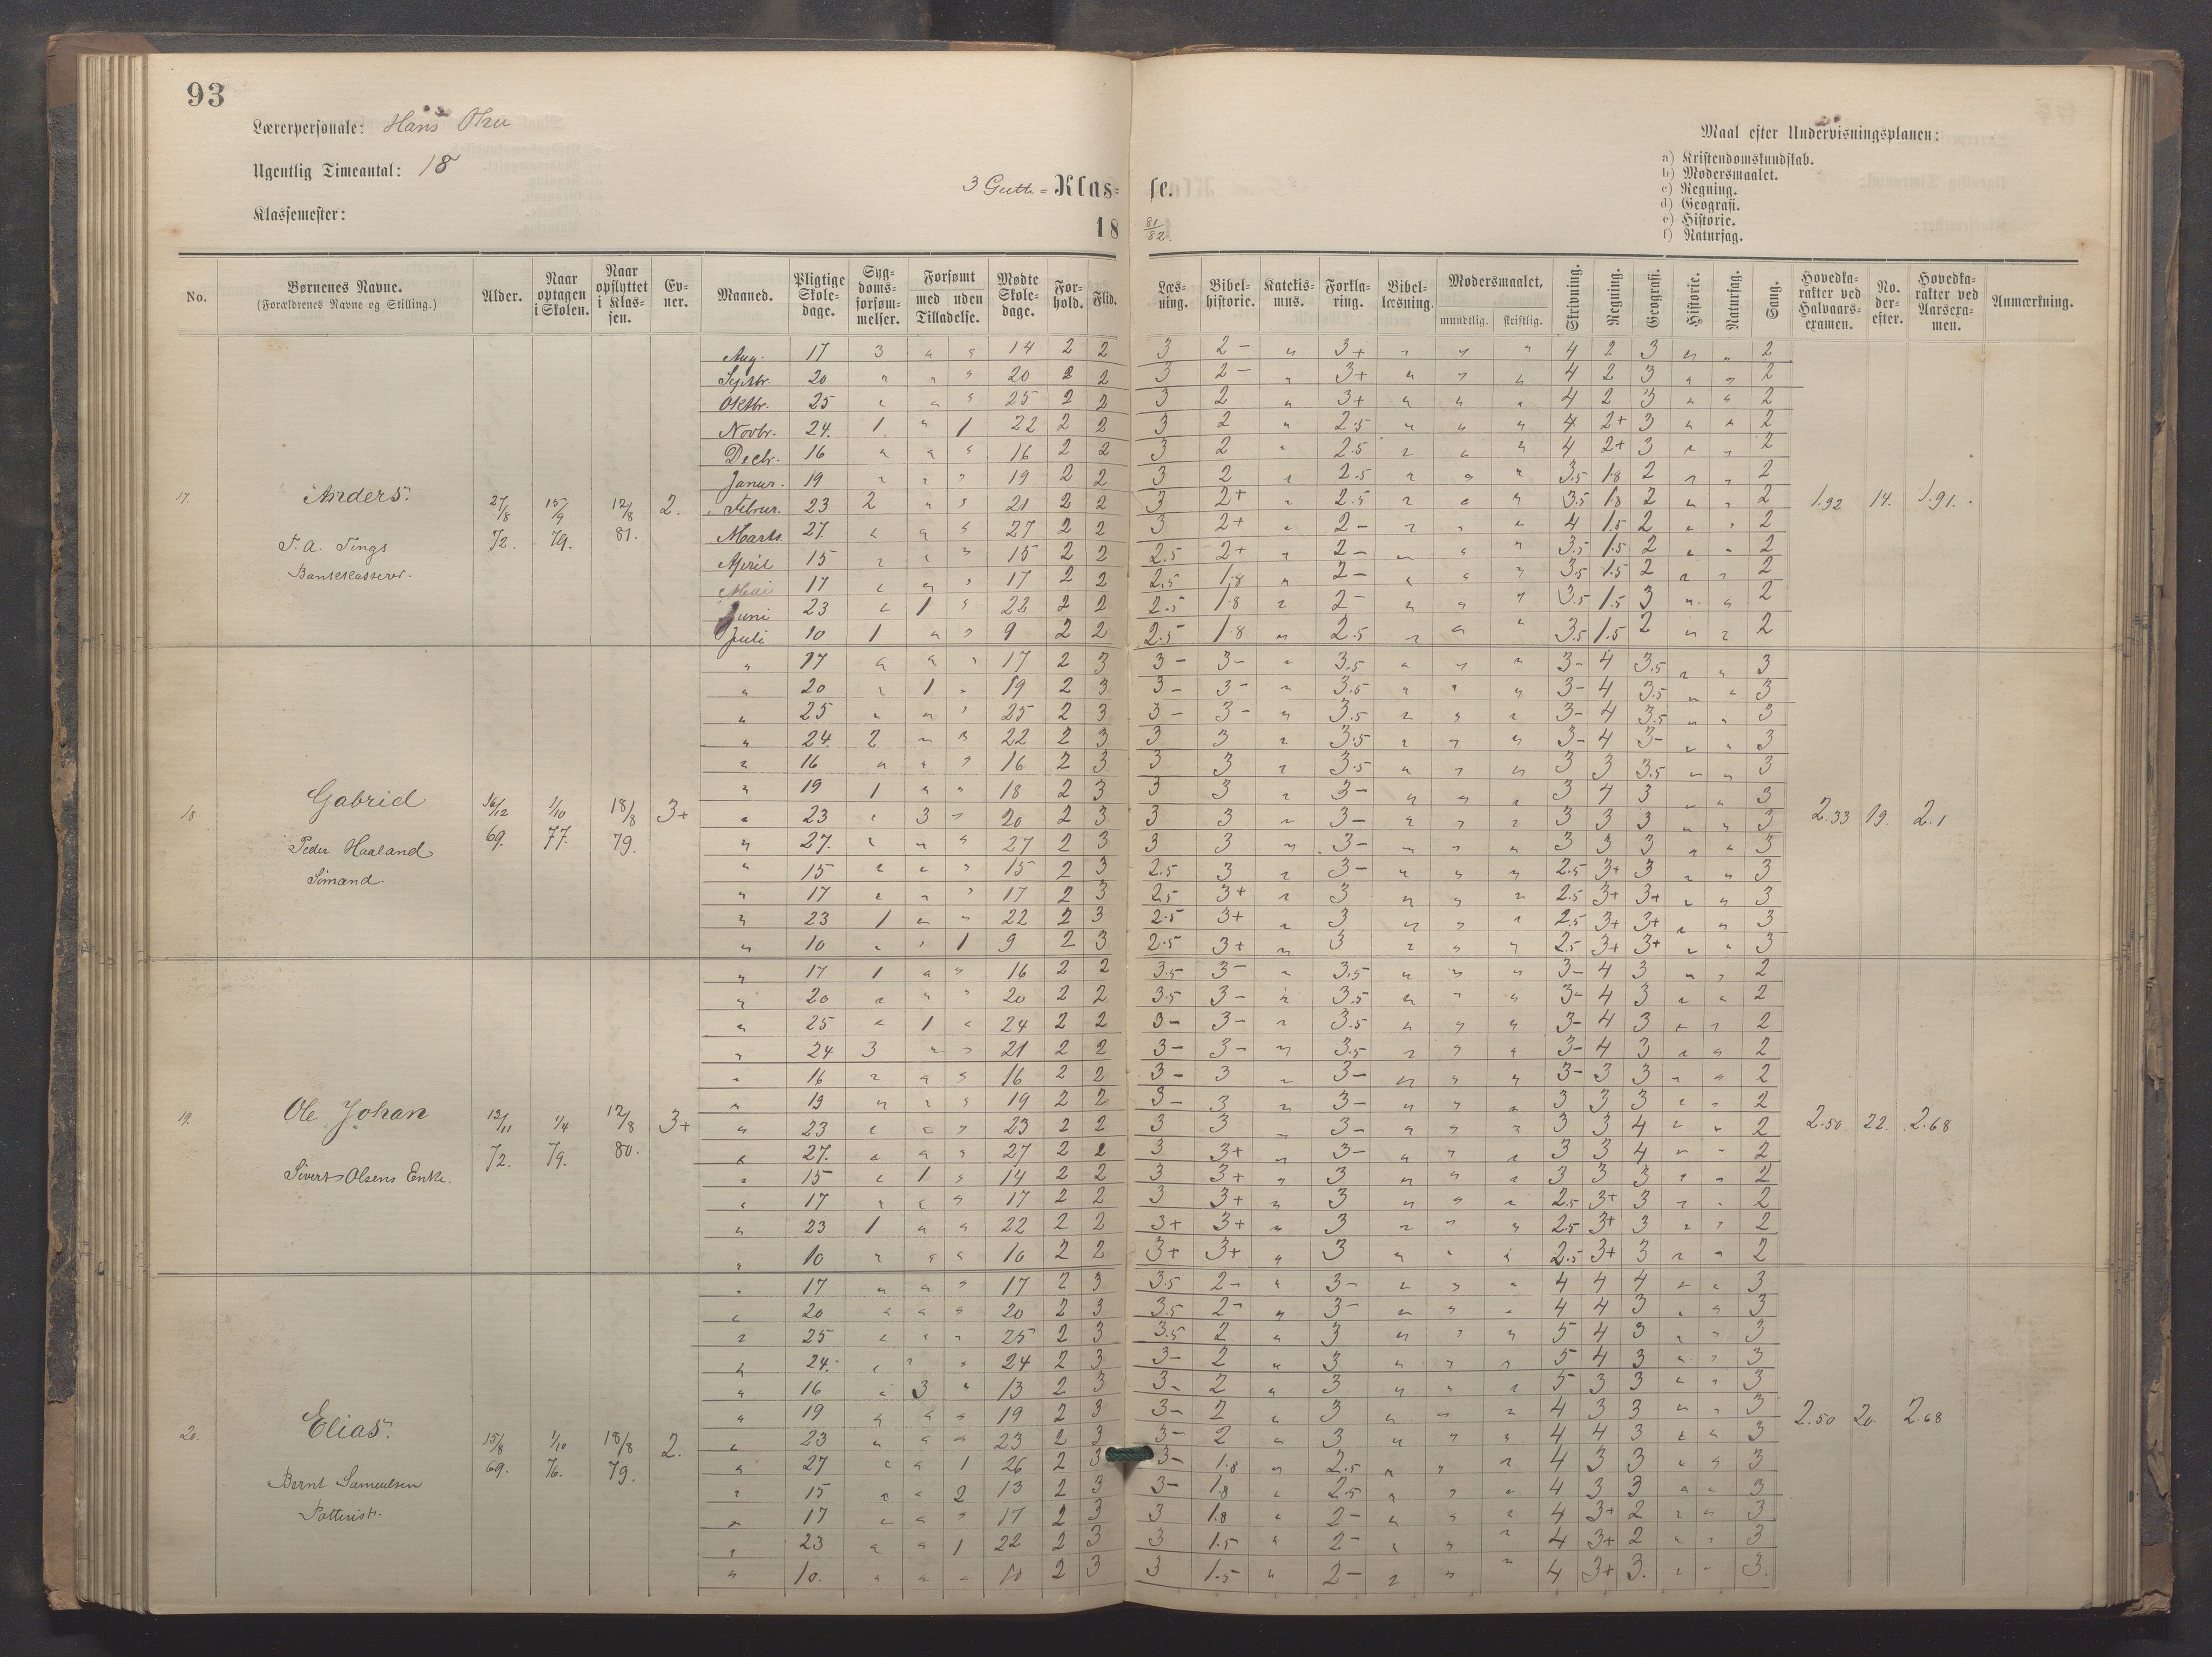 93
Lærerpersonale: Hans
Ugentlig Timeantal: 18
Klassemester:
3 Gutte= Klas=se.
18 81/82.
Maal efter Undervisningsplanen:
a) Kristendomskundskab.
b) Modersmaalet.
c) Regning.
d) Geografi.
e) Historie.
f) Naturfag.
No. Børnenes Navne. (Forældrenes Navne og Stilling.) Alder. Naar optagen i Skolen. Naar opflyttet i Klas=sen. Ev=ner. Maaned. Pligtige Skole=dage. Syg=doms=forsøm=melser. Forsømt med uden Tilladelse. Mødte Skole=dage. For=hold. Flid. Læs=ning. Bibel=historie. Katekis=mus. Forkla=ring. Bibel=læsning. Modersmaalet, mundtlig. skriftlig. Skrivning. Regning. Geografi. Historie. Naturfag. Sang. Hovedka=rakter ved Halvaars=examen. No. der=efter. Hovedka=rakter ved Aarsexa=men. Anmærkning.
17. Anders. 27/8 72. 15/9 79. 12/8 81. 2. 1.92 14. 1.91.
T. A. Tengs
Bankkasserer.
Aug. 17 3 " " 14 2 2 3 2- " 3+ " " " 4 2 3 " " 2
Septbr. 20 " " " 20 2 2 3 2- " 3+ " " " 4 2 3 " " 2
Oktbr. 25 " " " 25 2 2 3 2 " 3+ " " " 4 2 3 " " 2
Novbr. 24. 1 " 1 22 2 2 3 2 " 2.5 " " " 4 2+ 3 " " 2
Decbr. 16 " " " 16 2 2 3 2 " 2.5 " " " 4 2+ 3 " " 2
Januar. 19 " " " 19 2 2 3 2 " 2.5 " " " 3.5 1.8 2 " " 2
Februar. 23 2 " " 21 2 2 3 2+ " 2.5 " " " 3.5 1.8 2 " " 2
Marts. 27. " " " 27 2 2 3 2+ " 2- " " " 4 1.5 2 " " 2
April 15 " " " 15 2 2 2.5 2+ " 2- " " " 3.5 1.5 2 " " 2
Mai 17 " " " 17 2 2 2.5 1.8 " 2- " " " 3.5 1.5 2 " " 2
Juni 23 " 1 " 22 2 2 2.5 1.8 " 2- " " " 3.5 1.5 3 " " 2
Juli 10 1 " " 9 2 2 2.5 1.8 " 2.5 " " " 3.5 1.5 2 " " 2
18. Gabriel 16/12 69. 1/10 77. 18/8 79. 3+ 2.33 19. 2.1
Peder Haaland
Sømand.
" 17 " " " 17 2 3 3- 3- " 3.5 " " " 3- 4 3.5 " " 3
" 20 " 1 " 19 2 3 3- 3- " 3.5 " " " 3- 4 3.5 " " 3
" 25 " " " 25 2 3 3- 3- " 3.5 " " " 3- 4 3.5 " " 3
" 24. 2 " " 22 2 3 3 3 " 3.5 " " " 3- 4 3- " " 3
" 16 " " " 16 2 3 3 3 " 3.5 " " " 3 3 3.5 " " 3
" 19 1 " " 18 2 3 3 3 " 3- " " " 3 4 3 " " 3
" 23 " 3 " 20 2 3 3 3 " 3- " " " 3 3 3 " " 3
" 27. " " " 27 2 3 3 3 " 3- " " " 3 3 3 " " 3
" 15 " " " 15 2 3 2.5 3 " 3- " " " 2.5 3+ 3 " " 3
" 17 " " " 17 2 3 2.5 3+ " 3 " " " 2.5 3+ 3+ " " 3
" 23 1 " " 22 2 3 2.5 3+ " 3 " " " 2.5 3+ 3+ " " 3
" 10 " " 1 9 2 3 2.5 3+ " 3 " " " 2.5 3+ 3+ " " 3
19. Ole Johan 12/11 72. 1/4 79. 12/8 80. 3+ 2.50 22. 2.68
Sivert Olsens Enke.
" 17 1 " " 16 2 2 3.5 3- " 3.5 " " " 3- 4 3 " " 2
" 20 " " " 20 2 2 3.5 3- " 3.5 " " " 3- 4 3 " " 2
" 25 " 1 " 24 2 2 3- 3- " 3.5 " " " 3- 4 3 " " 2
" 24 3 " " 21 2 2 3- 3- " 3.5 " " " 3- 4 3 " " 2
" 16 " " " 16 2 2 3- 3 " 3- " " " 3- 3 3 " " 2
" 19 " " " 19 2 2 3- 3 " 3- " " " 3 3 3 " " 2
" 23 " " " 23 2 2 3 3 " 3- " " " 3 3 4 " " 2
" 27. " " " 27 2 2 3 3+ " 3- " " " 3 3 4 " " 2
" 15 " 1 " 14 2 2 3 3+ " 3 " " " 3 3 3 " " 2
" 17 " " " 17 2 2 3 3+ " 3 " " " 2.5 3+ 3 " " 2
" 23 1 " " 22 2 2 3+ 3+ " 3 " " " 2.5 3+ 3 " " 2
" 10 " " " 10 2 2 3+ 3+ " 3 " " " 2.5 3+ 3 " " 2
20. Elias. 15/8 69. 1/10 76. 18/8 79. 2. 2.50 20. 2.68
Bernt Samuelsen
" 17 " " " 17 2 3 3.5 2- " 3- " " " 4 4 4 " " 3
" 20 " " " 20 2 3 3.5 2- " 3- " " " 4 4 3 " " 3
" 25 " " " 25 2 3 3.5 2 " 3 " " " 5 4 3 " " 3
" 24. " " " 24 2 3 3- 2 " 3 " " " 5 4 3 " " 3
" 16 " 3 " 13 2 3 3- 2 " 3 " " " 5 3 3 " " 3
" 19 " " " 19 2 3 3- 2 " 3 " " " 4 3 3 " " 3
" 23 " " " 23 2 3 3- 2 " 3 " " " 4 4 3 " " 3
" 27 " " 1 26 2 3 3- 1.8 " 2.5 " " " 4 3 3 " " 3
" 15 " " 2 13 2 3 3- 1.8 " 2.5 " " " 4 3 3 " " 3
" 17 " " " 17 2 3 3 1.8 " 2- " " " 4 3+ 2 " " 3
" 23 " " 1 22 2 3 3 1.5 " 2- " " " 4 3+ 2 " " 3
" 10. " " " 10 2 3 3 1.5 " 2- " " " 4 3+ 3. " " 3.